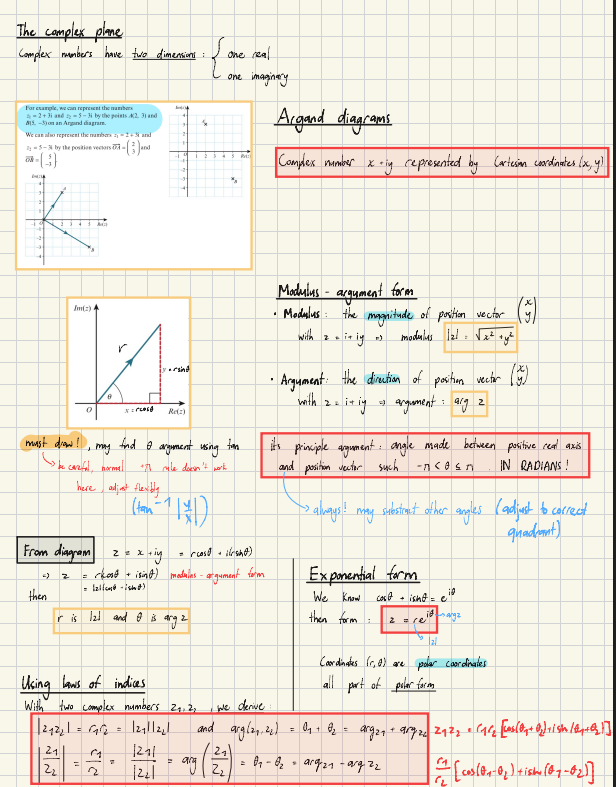 The complex plane
Complex numbers have two dimensions : { one real
one imaginary
For example, we can represent the numbers
z₁ = 2 + 3i and z₂ = 5 − 3i by the points A(2, 3) and
B(5, −3) on an Argand diagram.
We can also represent the numbers z₁ = 2 + 3i and
z₂ = 5 − 3i by the position vectors OA = (2 3) and
OB = (5 −3).
Im(z)
Re(z)
A
B
Im(z)
Re(z)
A
B
Argand diagrams
Complex number x + iy represented by Cartesian coordinates (x, y)
Im(z)
r
y = rsinθ
θ
O
x = rcosθ
Re(z)
Modulus - argument form
• Modulus : the magnitude of position vector (x y)
with z = i + iy ⇒ modulus |z| = √x² + y²
• Argument : the direction of position vector (x y)
with z = i + iy ⇒ argument : arg z
must draw! , may find θ argument using tan
be careful, normal +π rule doesn't work
here, adjust flexibly
(tan⁻¹ |y/x|)
its principle argument : angle made between positive real axis
and position vector such −π < θ ≤ π IN RADIANS!
always! may substract other angles (adjust to correct
quadrant)
From diagram z = x + iy = rcosθ + i(rsinθ)
⇒ z = r(cosθ + isinθ) modulus-argument form
= |z|(cosθ + isinθ)
then
r is |z| and θ is arg z
Exponential form
We know cosθ + isinθ = e^iθ
then form : z = re^iθ → arg z
|z|
Coordinates (r, θ) are polar coordinates
all part of polar form
Using laws of indices
With two complex numbers z₁, z₂ , we derive :
|z₁z₂| = r₁r₂ = |z₁||z₂| and arg(z₁, z₂) = θ₁ + θ₂ = arg z₁ + arg z₂
z₁z₂ = r₁r₂[cos(θ₁+θ₂)+isin(θ₁+θ₂)]
|z₁/z₂| = r₁/r₂ = |z₁|/|z₂| = arg(z₁/z₂) = θ₁ − θ₂ = arg z₁ − arg z₂
r₁/r₂ [cos(θ₁−θ₂)+isin(θ₁−θ₂)]